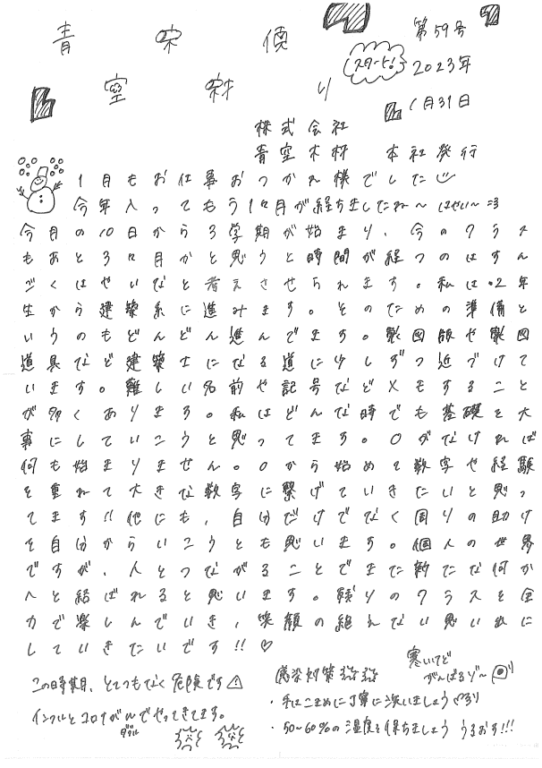 青空便り
第59号
スタート!
2023年
1月31日
株式会社
青空木材 本社発行
1月もお仕事おつかれ様でした
今年入ってもう1ヶ月が経ちましたね〜 はやい〜
今月の10日から3学期が始まり、今のクラス
もあと3ヶ月かと思うと時間が経つのはすん
ごくはやいなと考えさせられます。私は2年
生から建築系に進みます。そのための準備と
いうのもどんどん進んでます。製図版や製図
道具など建築士になる道に少しずつ近づけて
います。難しい名前や記号などメモすること
が多くあります。私はどんな時でも基礎を大
事にしていこうと思ってます。0がなければ
何も始まりません。0から始めて数字や経験
を重ねて大きな数字に繋げていきたいと思っ
てます!!他にも、自分だけでなく周りの助け
を自分からいこうとも思います。個人の世界
ですが、人とつながることでまた新たな何か
へと結ばれると思います。残りのクラスを全
力で楽しんでいき、笑顔の絶えない思い出に
していきたいです!!♡
この時期、とてつもなく危険です
インフルとコロナがWでやってきてます。
ダブル
寒いけど
がんばるゾ〜
感染対策
・手はこまめに丁寧に洗いましょう
・50~60%の湿度を保ちましょう うるおす!!!